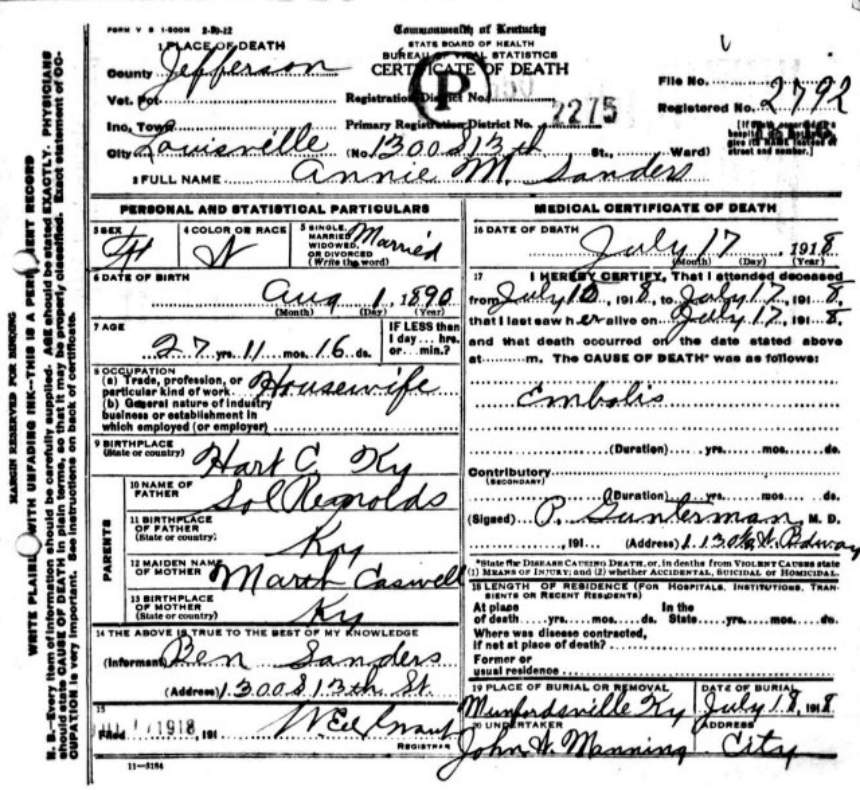 Commonwealth of Kentucky
STATE BOARD OF HEALTH
BUREAU OF VITAL STATISTICS
CERTIFICATE OF DEATH
P
1 PLACE OF DEATH
County Jefferson
Vot. Pct.
Inc. Town
City Louisville
Registration District No.
Primary Registration District No. 2275
(No. 1300 S 13th St., Ward)
File No.
Registered No. 2792
2 FULL NAME Annie M. Sanders
PERSONAL AND STATISTICAL PARTICULARS
3 SEX F
4 COLOR OR RACE W
5 SINGLE, MARRIED, WIDOWED, OR DIVORCED (Write the word) Married
6 DATE OF BIRTH
Aug 1, 1890
(Month) (Day) (Year)
7 AGE
27 yrs. 11 mos. 16 ds.
IF LESS than
1 day ... hrs.
or ... min.?
8 OCCUPATION
(a) Trade, profession, or
particular kind of work Housewife
(b) General nature of industry
business or establishment in
which employed (or employer)
9 BIRTHPLACE
(State or country) Hart C. Ky
PARENTS
10 NAME OF FATHER Sol Reynolds
11 BIRTHPLACE OF FATHER (State or country) Ky
12 MAIDEN NAME OF MOTHER Caswell
13 BIRTHPLACE OF MOTHER (State or country) Ky
14 THE ABOVE IS TRUE TO THE BEST OF MY KNOWLEDGE
(Informant) Ben Sanders
(Address) 1300 S 13th St.
15
Filed 1918, 191
REGISTRAR
11-3184
MEDICAL CERTIFICATE OF DEATH
16 DATE OF DEATH
July 17, 1918
(Month) (Day) (Year)
17 I HEREBY CERTIFY, That I attended deceased
from July 10, 1918, to July 17, 1918,
that I last saw her alive on July 17, 1918,
and that death occurred on the date stated above
at m. The CAUSE OF DEATH* was as follows:
Embolis
(Duration) yrs. mos. ds.
Contributory
(SECONDARY)
(Duration) yrs. mos. ds.
(Signed) P. Gunterman, M. D.
, 191 (Address) W. Bdway
*State the DISEASE CAUSING DEATH, or, in deaths from VIOLENT CAUSES state
(1) MEANS OF INJURY; and (2) whether ACCIDENTAL, SUICIDAL or HOMICIDAL.
18 LENGTH OF RESIDENCE (FOR HOSPITALS, INSTITUTIONS, TRANSIENTS OR RECENT RESIDENTS)
At place of death yrs. mos. ds. In the State yrs. mos. ds.
Where was disease contracted,
if not at place of death?
Former or
usual residence
19 PLACE OF BURIAL OR REMOVAL
Munfordsville Ky
DATE OF BURIAL
July 18, 1918
20 UNDERTAKER
John H. Manning
ADDRESS
City
MARGIN RESERVED FOR BINDING
WRITE PLAINLY WITH UNFADING INK—THIS IS A PERMANENT RECORD
N. B.—Every item of information should be carefully supplied. AGE should be stated EXACTLY. PHYSICIANS
should state CAUSE OF DEATH in plain terms, so that it may be properly classified. Exact statement of OC-
CUPATION is very important. See instructions on back of certificate.